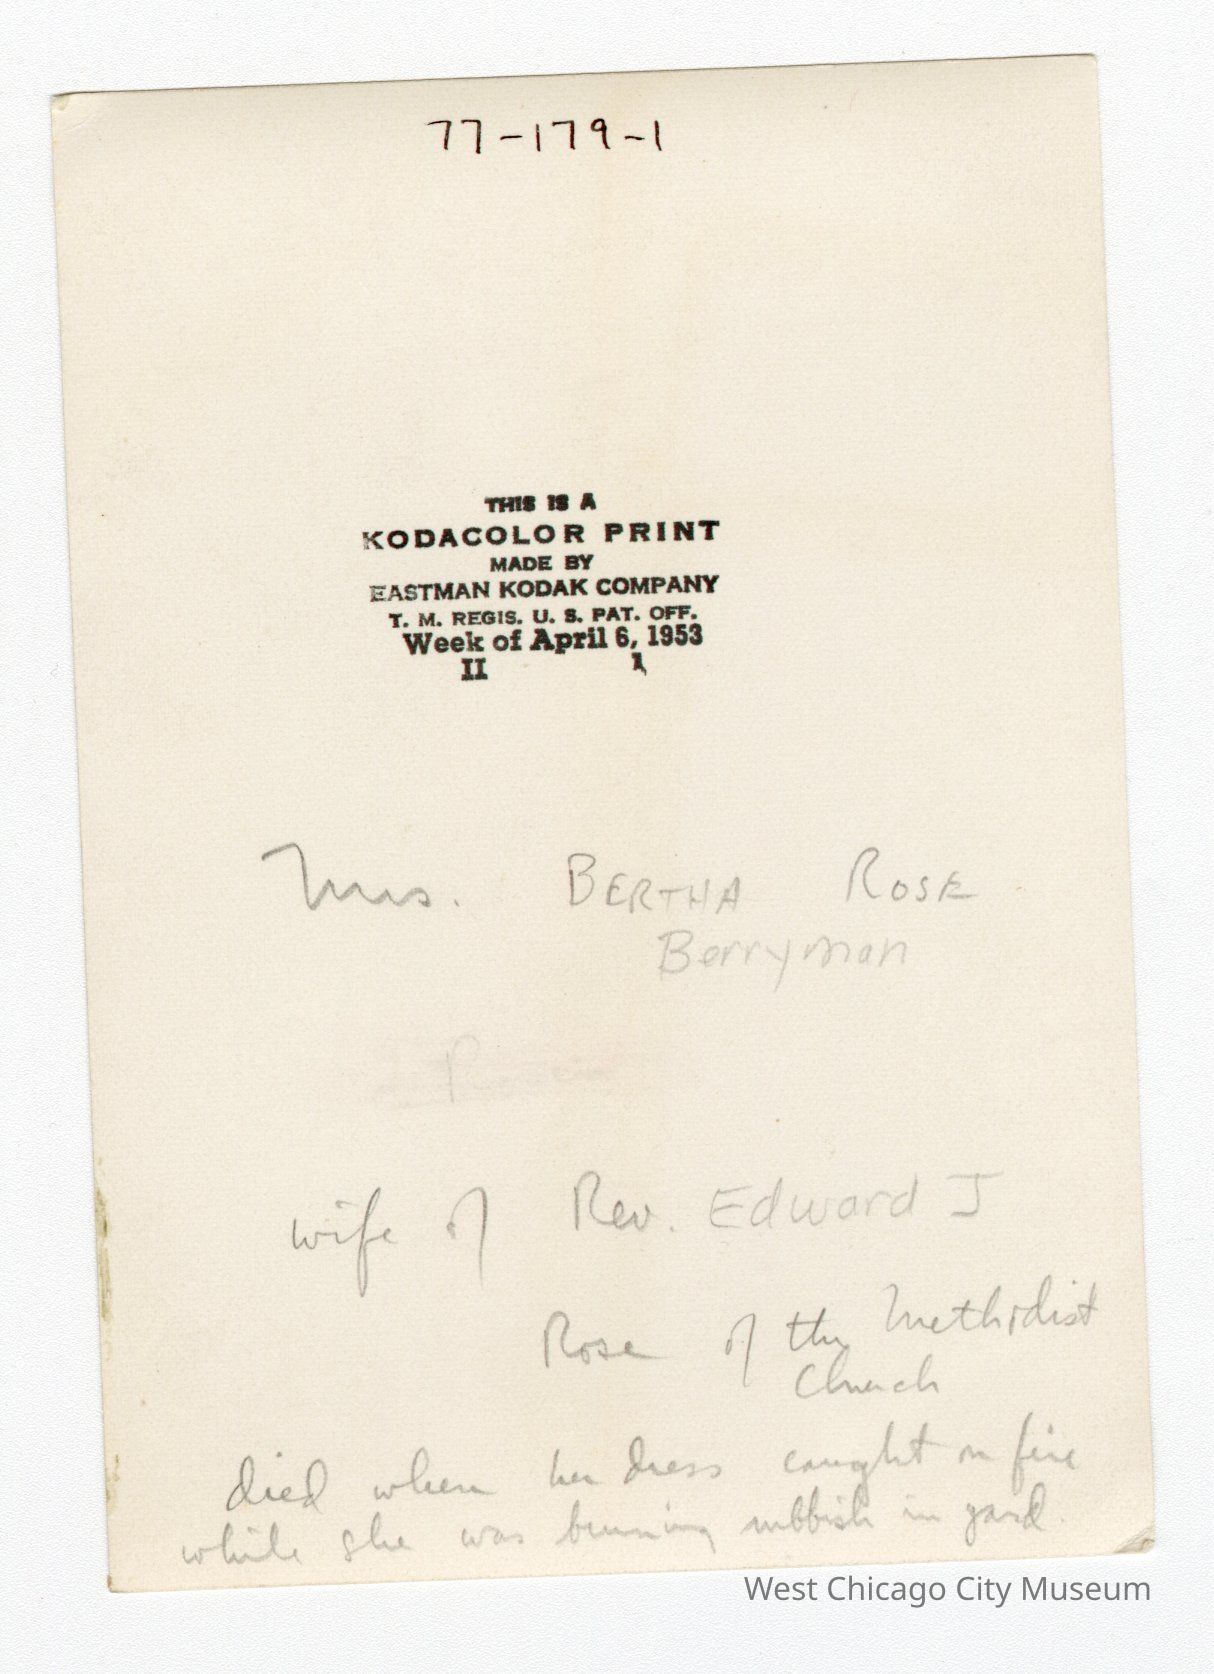 77-179-1
THIS IS A
KODACOLOR PRINT
MADE BY
EASTMAN KODAK COMPANY
T. M. REGIS. U. S. PAT. OFF.
Week of April 6, 1953
II 1
Mrs. BERTHA ROSE
Berryman
wife of Rev. Edward J
Rose of the Methodist
Church
died when her dress caught on fire
while she was burning rubbish in yard.
West Chicago City Museum